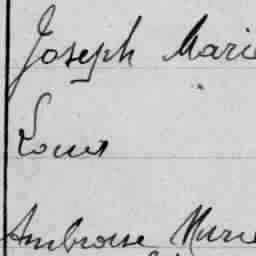 Joseph Marie
Louis
Ambroise Marie